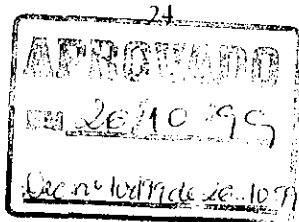 21
APROVADO
EM 26/10/99
Dec nº de 26.10.99